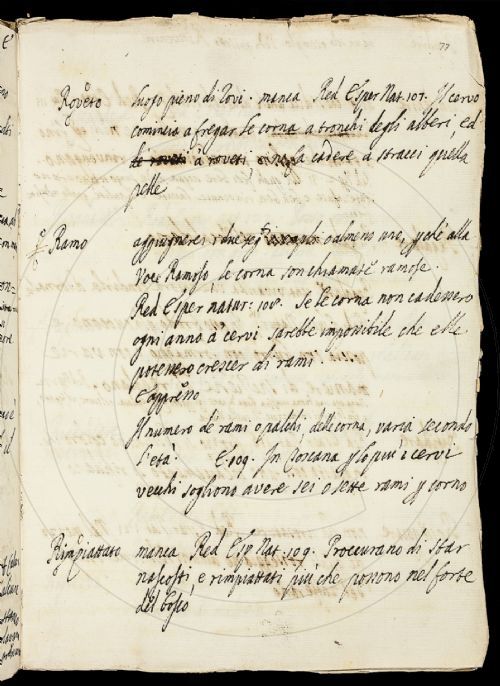 77
Roveto luogo pieno di Rovi. manca Red Esper Nat. 107. Il cervo
comincia a fregar le corna a tronchi degli alberi, ed
a roveti, e ne fa cadere a stracci quella
pelle
Ramo aggiugnerei i due seg.ti o almeno uno, p chè alla
Voce Ramoso, le corna son chiamate ramose.
Red Esper natur: 108. Se le corna non cadessero
ogni anno a' cervi sarebbe impossibile che elle
potessero crescer di rami.
E appresso
Il numero de rami o palchi delle corna, varia secondo
l'età. E. 109. In Toscana p lo più i cervi
vecchi sogliono avere sei o sette rami p corno
Rimpiattato manca Red Esp Nat. 109. Proccurano di star
nascosti, e rimpiattati più che possono nel forte
del bosco